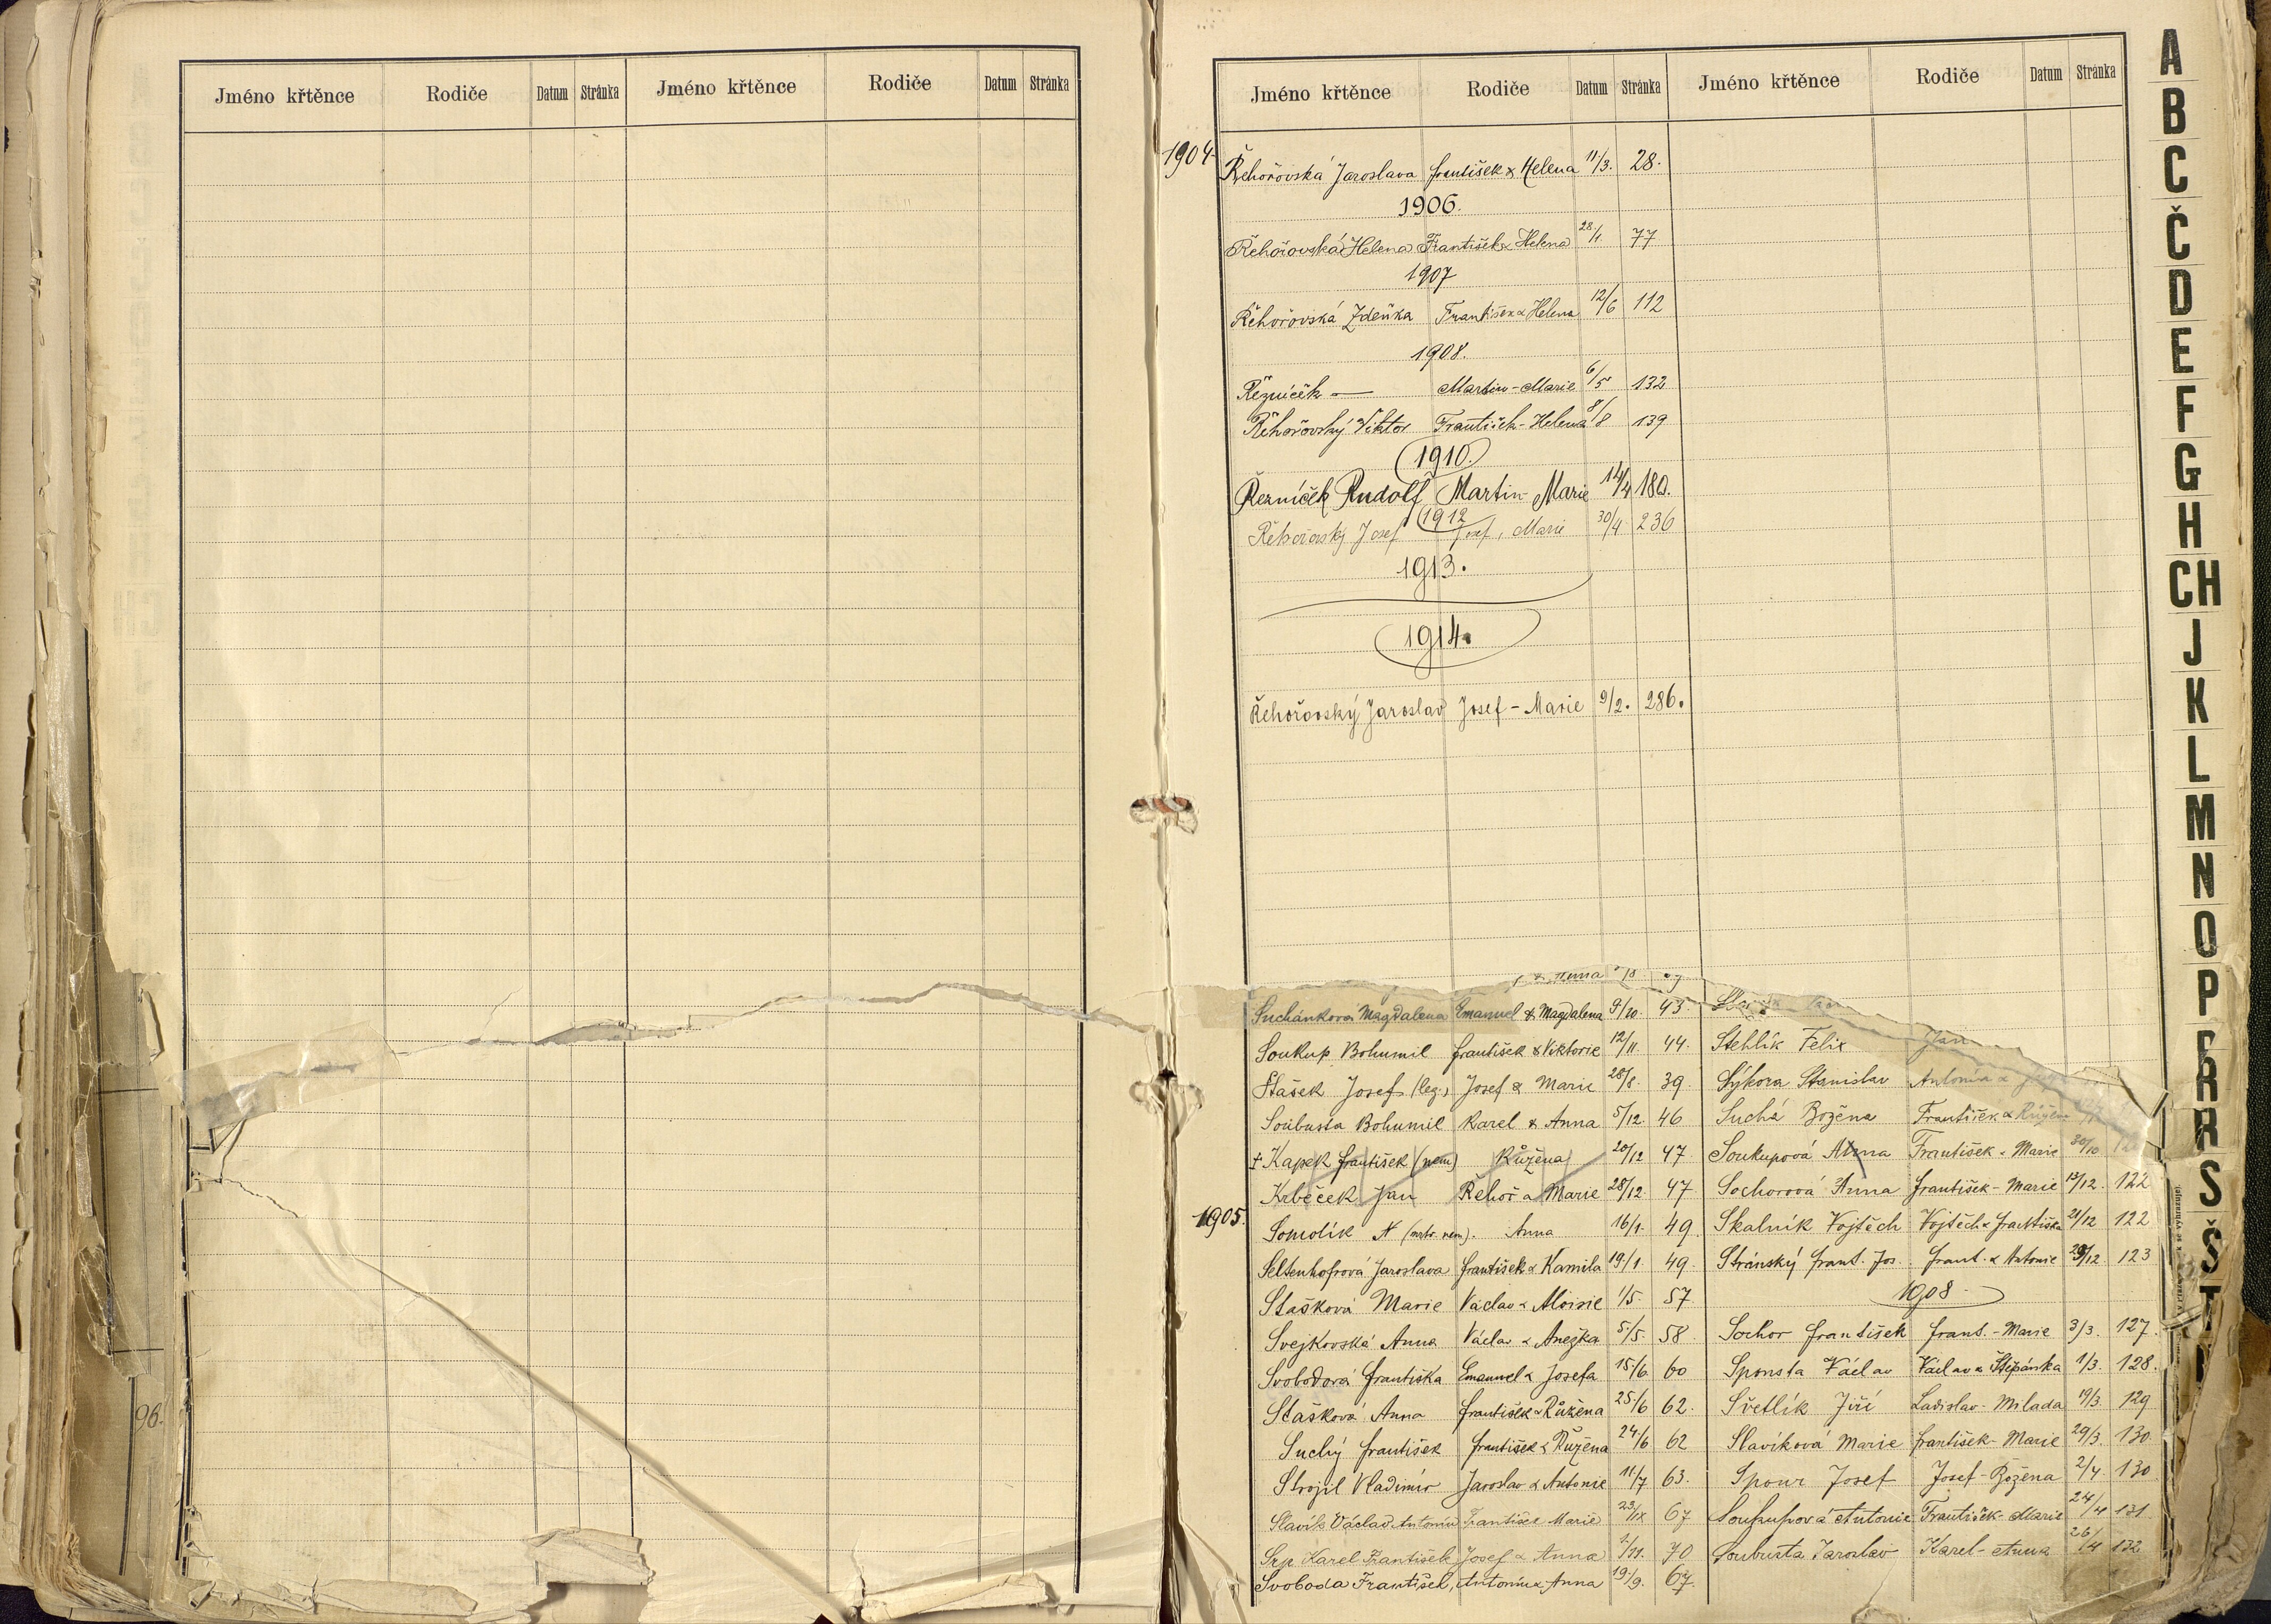 Jméno křtěnce Rodiče Datum Stránka Jméno křtěnce Rodiče Datum Stránka
96.
Jméno křtěnce Rodiče Datum Stránka Jméno křtěnce Rodiče Datum Stránka
1904
Řehořovská Jaroslava František & Helena 11/3. 28.
1906.
Řehořovská Helena František & Helena 28/1. 77
1907
Řehořovská Zdeňka František & Helena 12/6 112
1908.
Řezníček — Martin - Marie 6/5 132
Řehořovský Viktor František - Helena 8/8 139
1910.
Řezníček Rudolf Martin - Marie 14/4 180.
1912
Řehořovský Josef Josef, Marie 30/4 236
1913.
1914.
Řehořovský Jaroslav Josef - Marie 9/2. 286.
& Anna
Suchánková Magdalena Emanuel & Magdalena 9/10. 43.
Soukup Bohumil František & Viktorie 12/11. 44.
Stašek Josef (leg.) Josef & Marie 28/8. 39.
Soubusta Bohumil Karel & Anna 5/12. 46
+ Kapek František (nem) Růžena 20/12 47
Krbeček Jan Řehoř a Marie 28/12. 47
1905.
Somolík N (mrtv. nem). Anna 16/1. 49.
Seltenhofrová Jaroslava František & Kamila 19/1. 49.
Stašková Marie Václav & Aloisie 1/5. 57
Svejkovská Anna Václav & Anežka 5/5. 58.
Svobodová Františka Emanuel & Josefa 15/6. 60
Stašková Anna František & Růžena 25/6 62.
Suchý František František & Růžena 24/6 62
Strojil Vladimír Jaroslav & Antonie 11/7 63.
Slavík Václav Antonín František Marie 23/IX 67
Srp Karel František Josef & Anna 2/11. 70
Svoboda František, Antonín & Anna 19/9. 67.
Stehlík Felix Jan
Sýkora Stanislav Antonín &
Suchá Božena František & Růžena
Soukupová Anna František - Marie 30/10
Sochorová Anna František - Marie 17/12. 122
Skalník Vojtěch Vojtěch & Františka 21/12 122
Stránský Frant. Jos. Frant. & Antonie 29/12. 123
1908
Sochor František Frant. - Marie 3/3. 127.
Sponsta Václav Václav & Štěpánka 1/3. 128.
Světlík Jiří Ladislav - Milada 19/3. 129
Slavíková Marie František - Marie 29/3. 130.
Spour Josef Josef - Božena 2/4. 130
Soukupová Antonie František - Marie 24/4 131
Soubusta Jaroslav Karel - Anna 26/4 132
A
B
C
Č
D
E
F
G
H
CH
J
K
L
M
N
O
P
R
Ř
S
Š
T